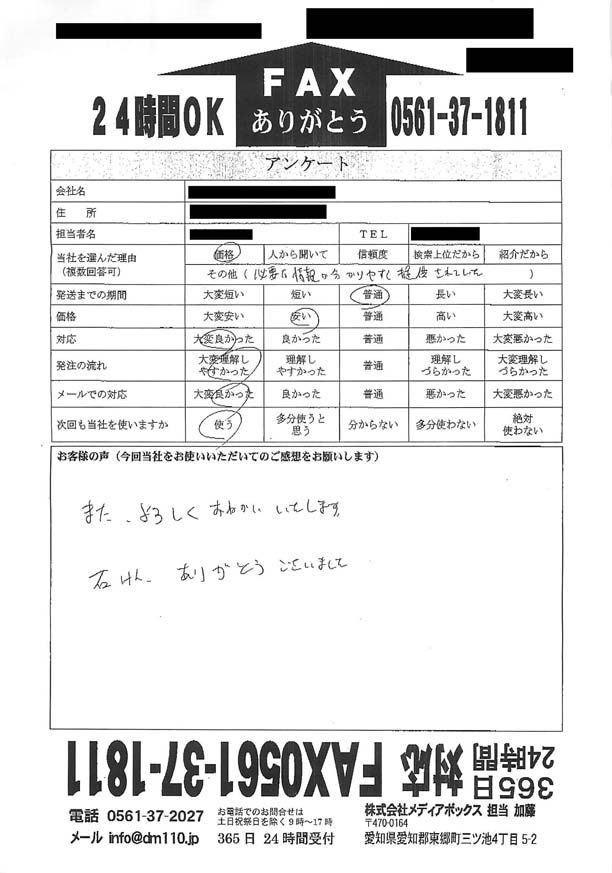 FAX
ありがとう
24時間OK
0561-37-1811
アンケート
会社名
住 所
担当者名 TEL
当社を選んだ理由
(複数回答可)
価格 人から聞いて 信頼度 検索上位だから 紹介だから
その他 ( 必要な情報が分かりやすく提供されていた )
発送までの期間 大変短い 短い 普通 長い 大変長い
価格 大変安い 安い 普通 高い 大変高い
対応 大変良かった 良かった 普通 悪かった 大変悪かった
発注の流れ 大変理解しやすかった 理解しやすかった 普通 理解しづらかった 大変理解しづらかった
メールでの対応 大変良かった 良かった 普通 悪かった 大変悪かった
次回も当社を使いますか 使う 多分使うと思う 分からない 多分使わない 絶対使わない
お客様の声(今回当社をお使いいただいてのご感想をお願いします)
また、よろしくおねがいいたします
石けん、ありがとうございまして
365日
24時間 対応 FAX0561-37-1811
電話 0561-37-2027
メール info@dm110.jp
お電話でのお問合せは
土日祝祭日を除く9時~17時
365日24時間受付
株式会社メディアボックス 担当 加藤
〒470-0164
愛知県愛知郡東郷町三ツ池4丁目5-2